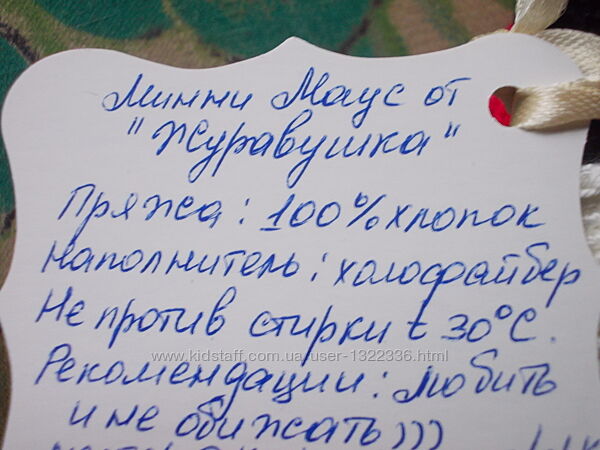 Минни Маус от
"Журавушка"
Пряжа: 100% хлопок
Наполнитель: холофайбер
Не против стирки t 30°C.
www.kidstaff.com.ua/user-1322336.html
Рекомендации: любить
и не обижать)))